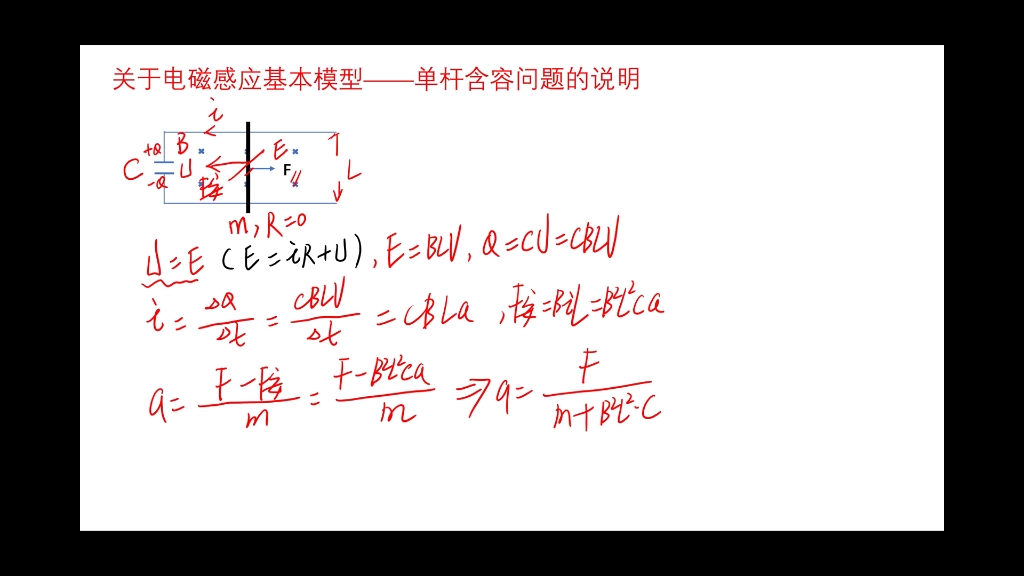 关于电磁感应基本模型——单杆含容问题的说明
i
+Q
B
E
C
U
F
L
-Q
F安
m, R=0
U=E (E=iR+U), E=BLV, Q=CU=CBLV
i = ΔQ/Δt = CBLV/Δt = CBLa , F安=BiL=B²L²ca
a = (F-F安)/m = (F-B²L²ca)/m ⇒ a = F/(m+B²L²·C)